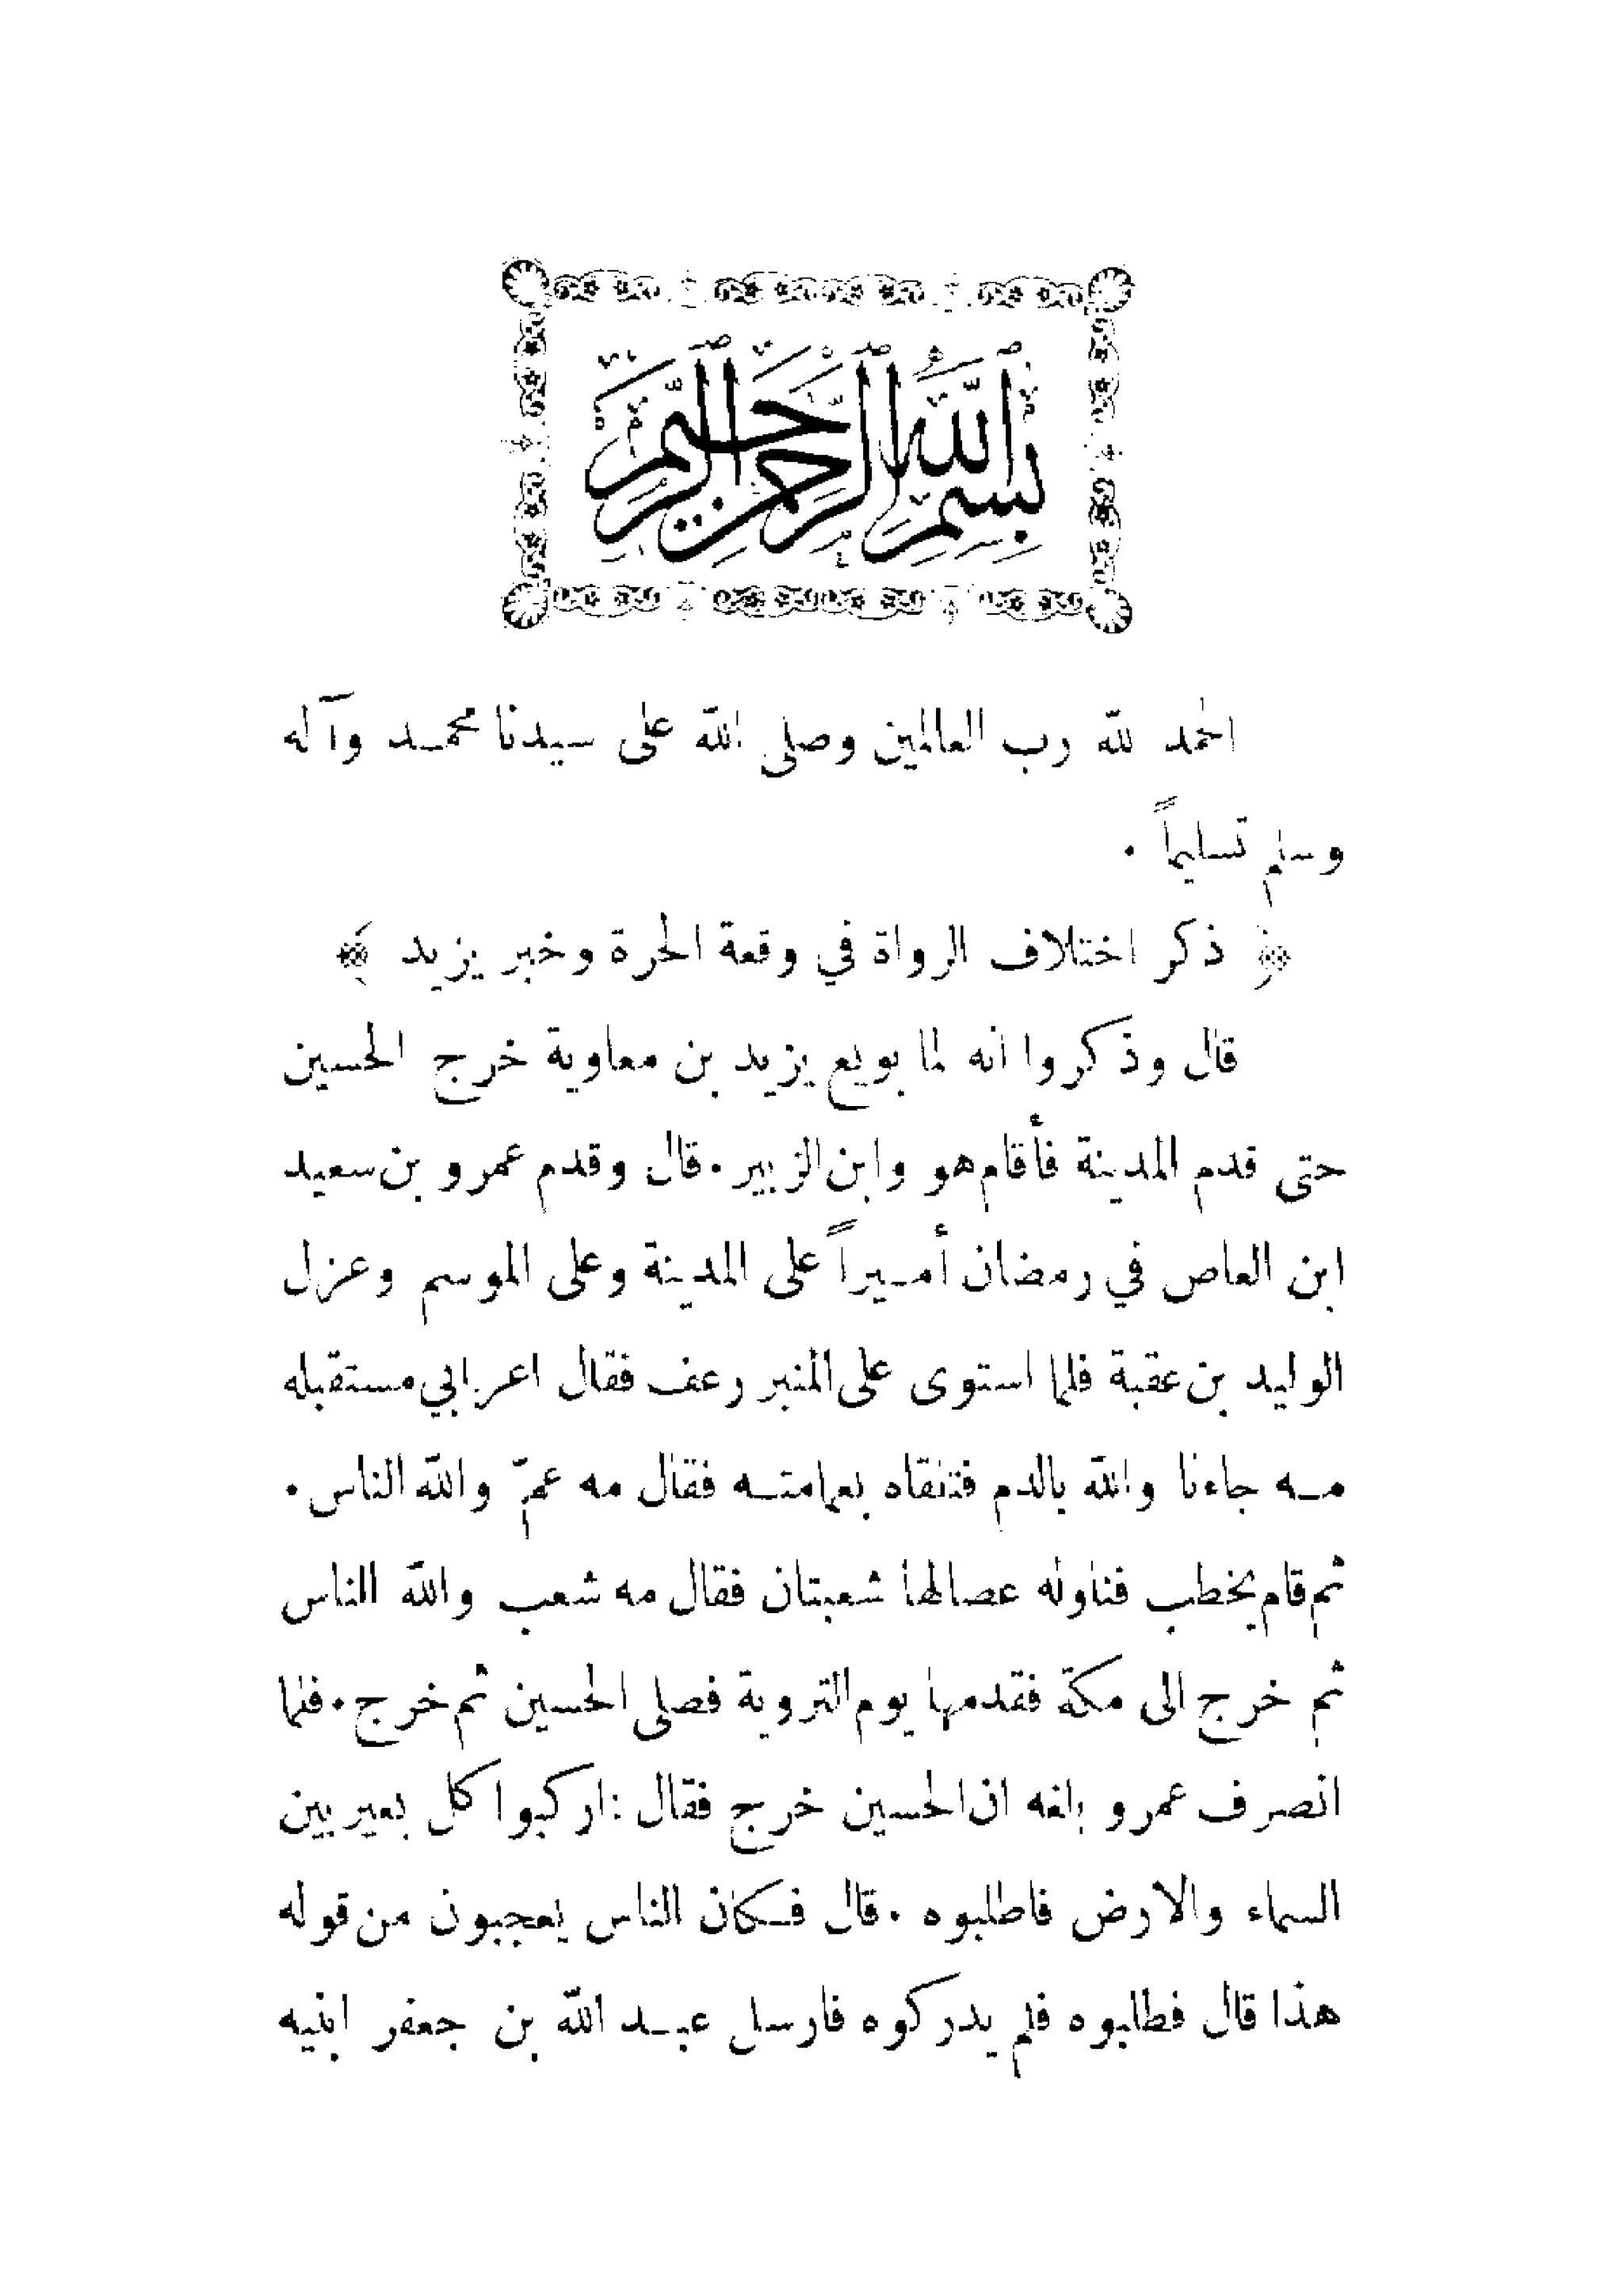 بسم الله الرحمن الرحيم
الحمد لله رب العالمين وصلى الله على سيدنا محمد وآله
وسلم تسليماً .
﴿ ذكر اختلاف الرواة في وقعة الحرة وخبر يزيد ﴾
قال وذكروا انه لما بويع يزيد بن معاوية خرج الحسين
حتى قدم المدينة فأقام هو وابن الزبير . قال وقدم عمرو بن سعيد
ابن العاص في رمضان أميراً على المدينة وعلى الموسم وعزل
الوليد بن عقبة فلما استوى على المنبر رعف فقال اعرابي مستقبله
مه جاءنا والله بالدم فتنقاه بعمامته فقال مه عمّ والله الناس .
ثم قام يخطب فناوله عصا لها شعبتان فقال مه شعب والله الناس
ثم خرج الى مكة فقدمها يوم التروية فصلى الحسين ثم خرج . فلما
انصرف عمرو بلغه ان الحسين خرج فقال : اركبوا كل بعير بين
السماء والارض فاطلبوه . قال فكان الناس يعجبون من قوله
هذا قال فطلبوه فلم يدركوه فارسل عبد الله بن جعفر ابنيه